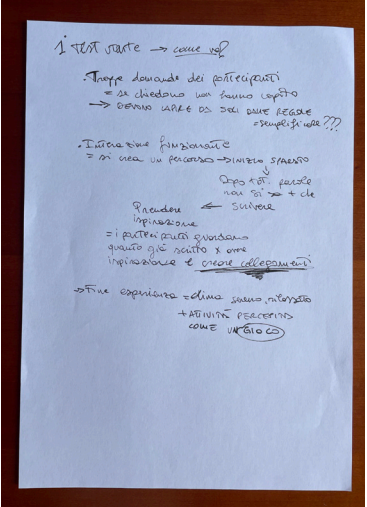 1 TEST → come va?
• Troppe domande dei partecipanti
= se chiedono non hanno capito
→ DEVONO CAPIRE DA SOLI DALLE REGOLE
= semplificare???
• Interazione funzionante
= si crea un percorso → INIZIO SPARSO
↓
Dopo tot. parole
non si sa + che
Prendere ← scrivere
ispirazione
= i partecipanti guardano
quanto già scritto x
ispirazione e creare collegamenti
→ Fine esperienza = clima sereno, rilassato
+ ATTIVITÀ PERCEPITA
COME UN GIOCO